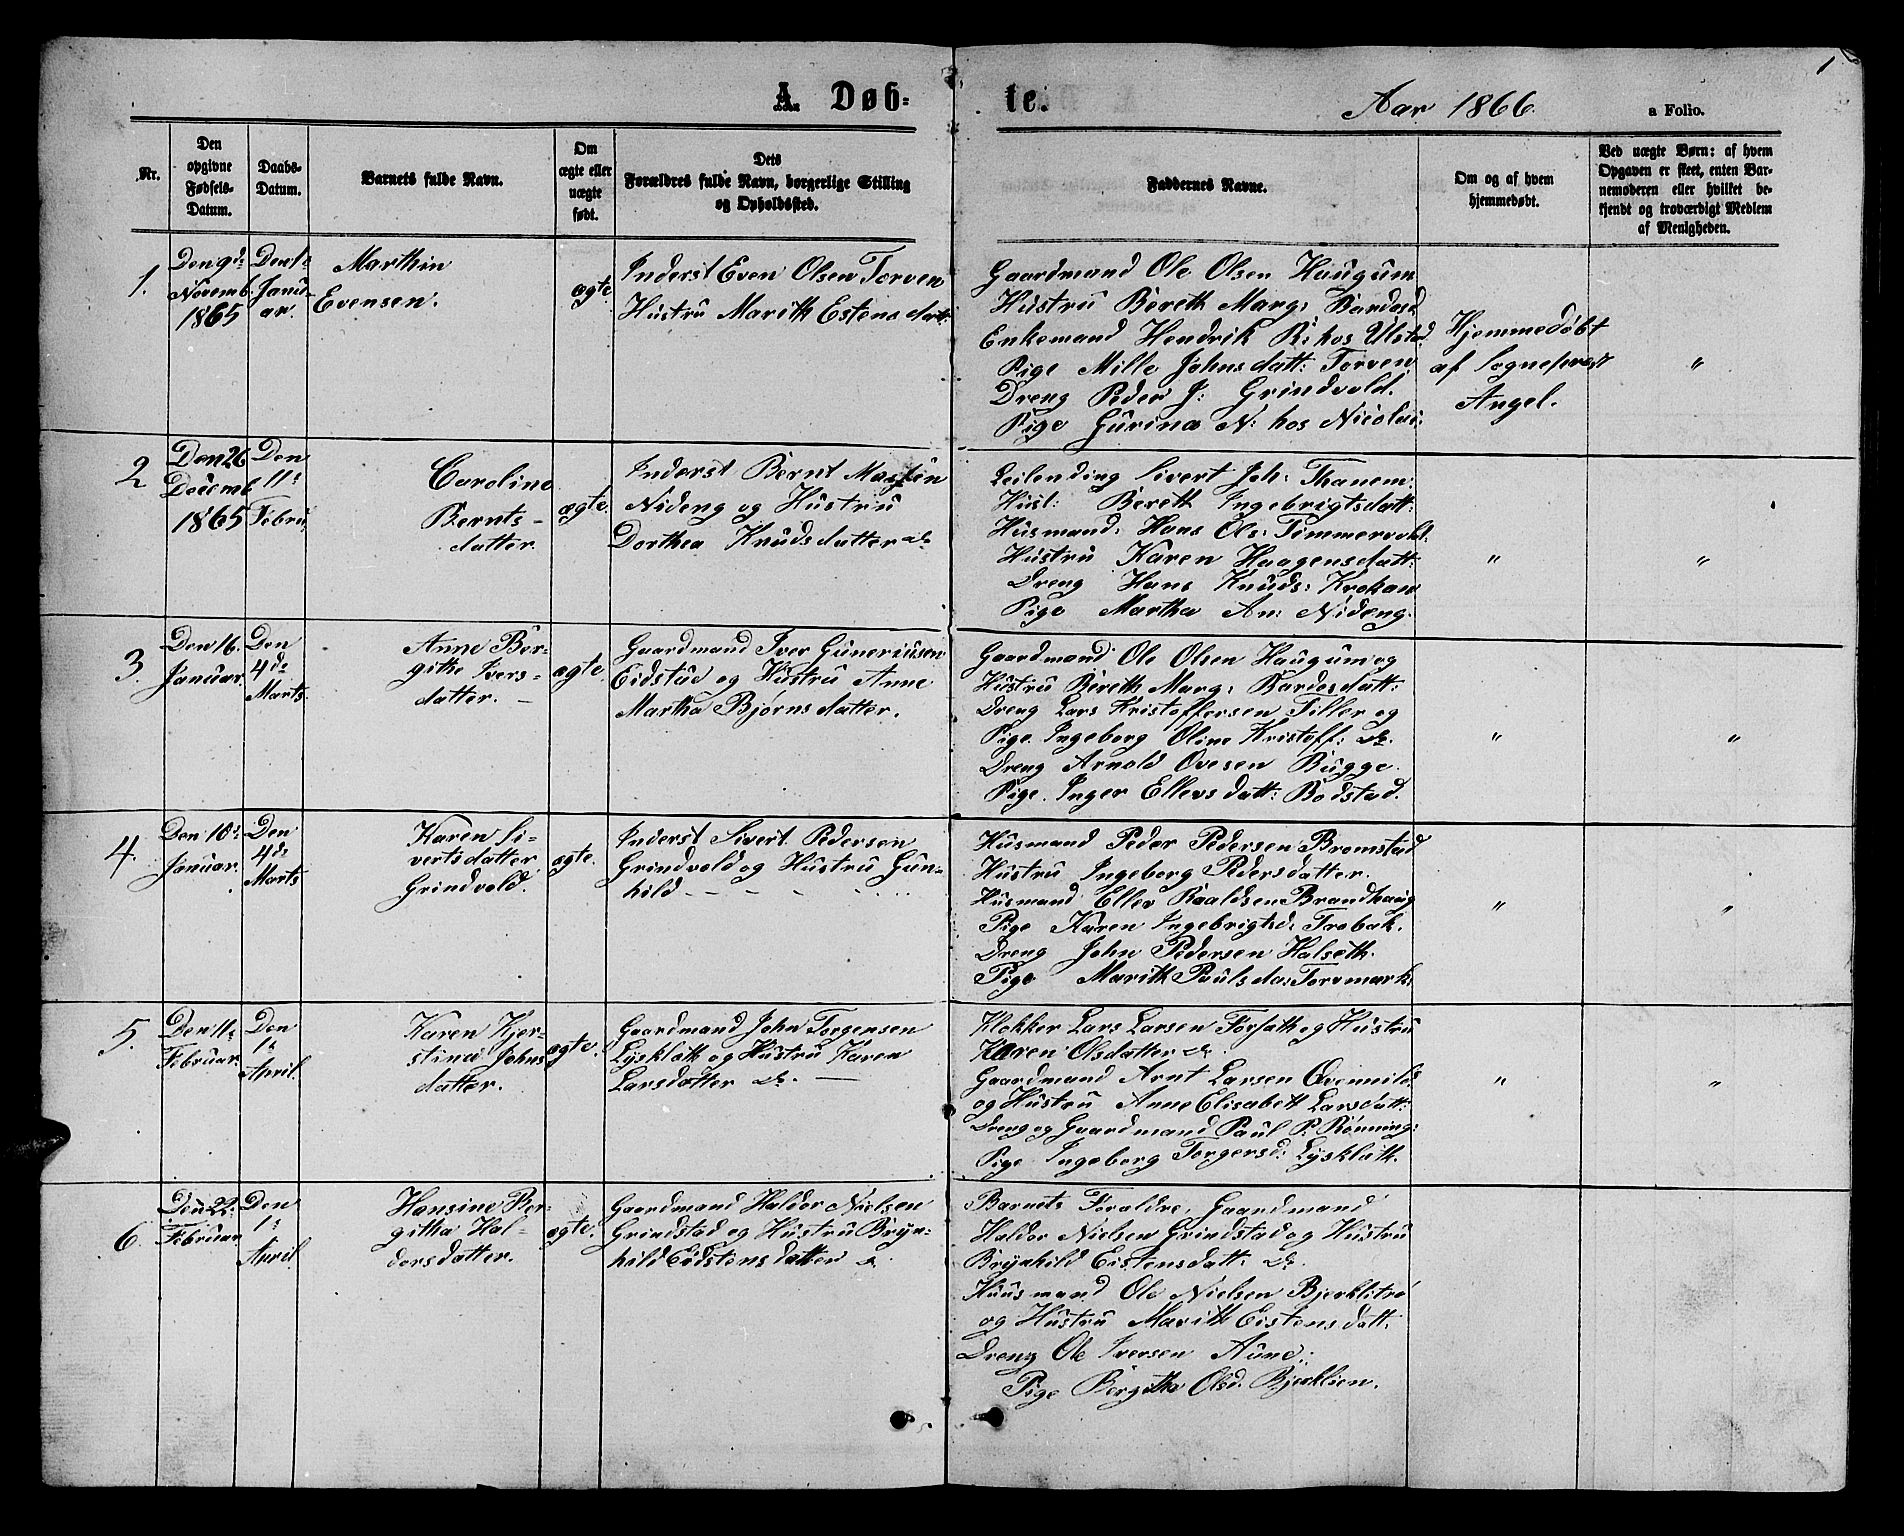 1
A. Døb=
te.
Aar 1866.
a Folio.
Nr.
Den
opgivne
Fødsels-
Datum.
Daabs-
Datum.
Barnets fulde Navn.
Om
ægte eller
uægte
født.
Dets
Forældres fulde Navn, borgerlige Stilling
og Opholdssted.
Faddernes Navne.
Om og af hvem
hjemmedøbt.
Ved uægte Børn: af hvem
Opgaven er skeet, enten Bar-
nemoderen eller hvilket be-
kjendt og troværdigt Medlem
af Menigheden.
1.
Den 9de
Novemb.
1865
Den 1s
Janu-
ar.
Marthin
Evensen.
ægte.
Inderst Even Olsen Torven
Hustru Marith Estensdatt:
Gaardmand Ole Olsen Haugum
Hustru Bereth Marg: Bardosd.
Enkemand Hendrik R: hos Ulstad.
Pige Mille Johnsdatt: Torven.
Dreng Peder J: Grindvold.
Pige Gurina N: hos Nicolai:
Hjemmedøbt
af Sogneprest
Angel.
"
2
Den 26
Decemb.
1865
Den
11s
Febru.
Caroline
Bernts-
datter.
ægte.
Inderst Bernt Martin
Nideng og Hustru
Dorthea Knudsdatter do
Leilending Sivert Joh: Thanem:
Hust: Bereth Ingebrigtsdatt:
Husmand: Hans Ols: Timmervolt:
Hustru Karen Haagensdatt:
Dreng Hans Knuds: Krokan
Pige Martha An: Nideng.
"
"
3.
Den 16.
Januar.
Den
4de
Marts
Anne Ber-
githe Ivers-
datter. —
ægte.
Gaardmand Iver Guneriusen
Eidstud og Hustru Anne
Martha Bjørnsdatter.
Gaardmand Ole Olsen Haugum og
Hustru Bereth Marg: Bardosdatt:
Dreng Lars Kristoffersen Tiller og
Pige. Ingeborg Oline Kristoff: do.
Dreng Arnold Ovesen Bugge.
Pige. Inger Ellevsdatt: Bodstad.
"
"
4.
Den 10s
Januar.
Den
4de
Marts
Karen Si-
vertsdatter
Grindvold.
ægte.
Inderst Sivert Pedersen
Grindvold og Hustru Gun-
hild - - - - -
Husmand Peder Pedersen Bromstad
Hustru Ingeborg Pedersdatter.
Husmand Ellev Roaldsen Brandhaug
Pige Karen Ingebrigtsd: Trobak.
Dreng John Pedersen Halseth.
Pige Marith Paulsda: Torvmark.
"
"
5.
Den 11s
Februar.
Den
1s
April.
Karen Kjer-
stine Johns
datter.
ægte.
Gaardmand John Torgersen
Lysklæt og Hustru Karen
Larsdatter do. —
Klokker Lars Larsen Forsæth og Hustru
Karen Olsdatter do.
Gaardmand Arnt Larsen
og Hustru Anne Elisabett Larsdatt:
Dreng og Gaardmand Paul P. Rønning:
Pige Ingeborg Torgersd: Lysklæth.
"
"
6.
Den 22.
Februar
Den
1s
April.
Hansine Ber-
githa Hal-
dorsdatter.
ægte.
Gaardmand Haldor Nielsen
Grindstad og Hustru Bryn-
hild Eidstensdatter do.
Barnets Forældre, Gaardmand
Haldor Nielsen Grindstad og Hustru
Brynhild Eistensdatt: do.
Huusmand Ole Nielsen Bjerklitrø
og Hustru Marith Eistensdatt.
Dreng Ole Iversen Aune.
Pige Bergitha Olsd. Bjerklien.